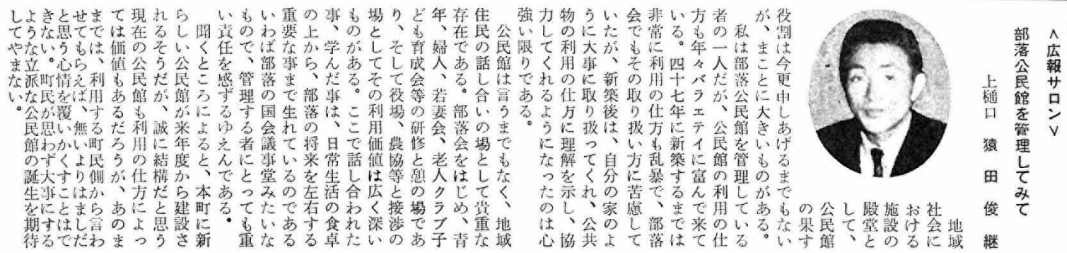 ＜広報サロン＞
部落公民館を管理してみて
上樋口　猿田俊継
地域
社会に
おける
施設の
殿堂と
して、
公民館
の果す
役割は今更申しあげるまでもない
が、まことに大きいものがある。
私は部落公民館を管理している
者の一人だが、公民館の利用の仕
方も年々バラエテイに富んで来て
いる。四十七年に新築するまでは
非常に利用の仕方も乱暴で、部落
会でもその取り扱い方に苦慮して
いたが、新築後は、自分の家のよ
うに大事に取り扱ってくれ、公共
物の利用の仕方に理解を示し、協
力してくれるようになったのは心
強い限りである。
公民館は言うまでもなく、地域
住民の話し合いの場として貴重な
存在である。部落会をはじめ、青
年、婦人、若妻会、老人クラブ子
ども育成会等の研修と憩の場であ
り、そして役場、農協等と接渉の
場としてその利用価値は広く深い
ものがある。ここで話し合われた
事、学んだ事は、日常生活の食卓
の上から、部落の将来を左右する
重要な事まで生れているのである
いわば部落の国会議事堂みたいな
もので、管理する者にとっても重
い責任を感ずるゆえんである。
聞くところによると、本町に新
らしい公民館が来年度から建設さ
れるそうだが、誠に結構だと思う
現在の公民館も利用の仕方によっ
ては価値もあるだろうが、あのま
までは、利用する町民側から言わ
せてもらえば、無いよりはましだ
と思う心情を覆いかくすことはで
きない。町民が思わず大事にする
ような立派な公民館の誕生を期待
してやまない。